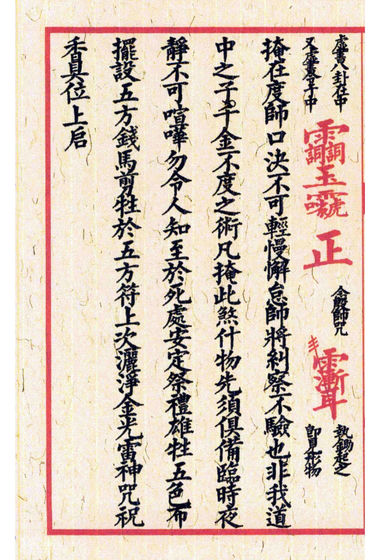 虛書八卦在中
又虛書子中
正
念殿師咒
執鋤起之
即見形物
掩在度師口決不可輕慢懈怠師將糾察不驗也非我道
中之子千金不度之術凡掩此煞什物先須俱備臨時夜
靜不可喧嘩勿令人知至於死處安定祭禮雄牲五色布
擺設五方錢馬前牲於五方符上次灑淨金光雷神咒祝
香具位上启